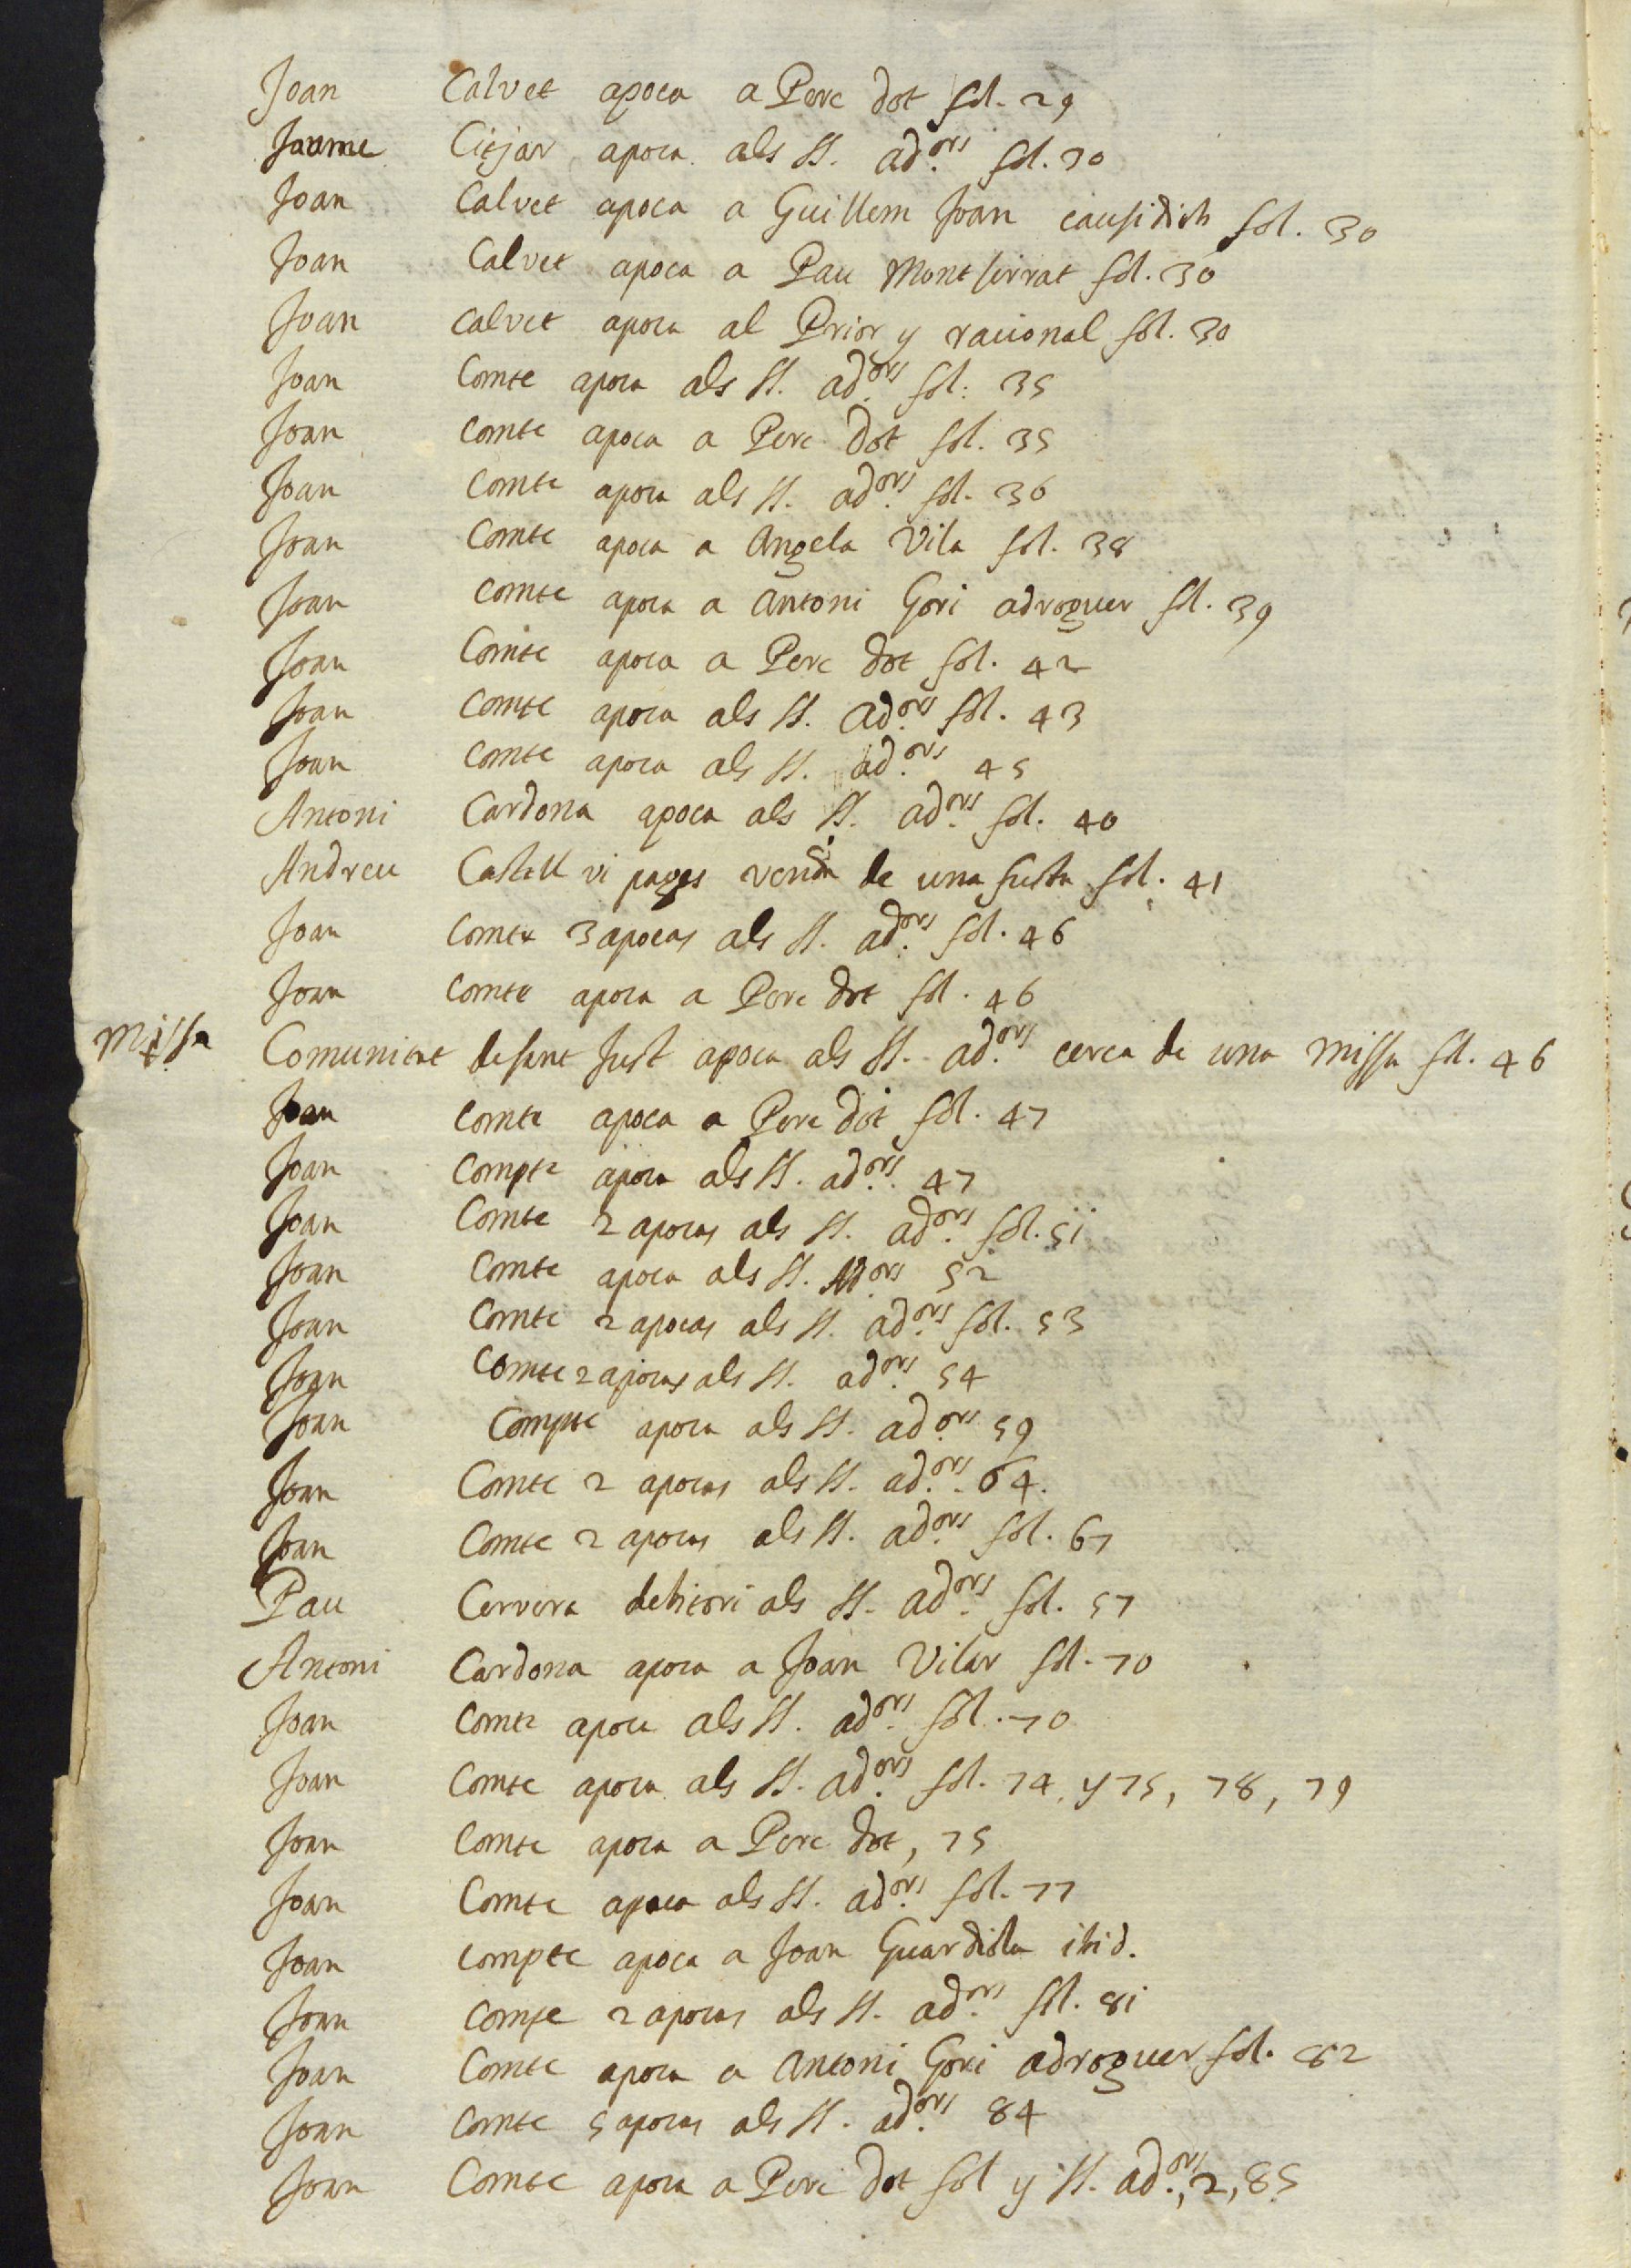 Joan Calvet apoca a Pere Dot fol. 29
Jaume Citjar apoca als SS. ad.ors fol. 30
Joan Calvet apoca a Guillem Joan causidich fol. 30
Joan Calvet apoca a Pau Montserrat fol. 30
Joan Calvet apoca al Prior y racional fol. 30
Joan Comte apoca als SS. ad.ors fol. 35
Joan Comte apoca a Pere Dot fol. 35
Joan Comte apoca als SS. ad.ors fol. 36
Joan Comte apoca a Angela Vila fol. 38
Joan Comte apoca a Antoni Gori adroguer fol. 39
Joan Comte apoca a Pere Dot fol. 42
Joan Comte apoca als SS. ad.ors fol. 43
Joan Comte apoca als SS. ad.ors 45
Antoni Cardona apoca als SS. ad.ors fol. 40
Andreu Castellvi pages venda de una fusta fol. 41
Joan Comte 3 apocas als SS. ad.ors fol. 46
Joan Comte apoca a Pere Dot fol. 46
Missa Comunitat de sant Just apoca als SS. ad.ors cerca de una missa fol. 46
Joan Comte apoca a Pere Dot fol. 47
Joan Compte apoca als SS. ad.ors 47
Joan Comte 2 apocas als SS. ad.ors fol. 51
Joan Comte apoca als SS. Ad.ors 52
Joan Comte 2 apocas als SS. ad.ors fol. 53
Joan Comte 2 apocas als SS. ad.ors 54
Joan Compte apoca als SS. ad.ors 59
Joan Comte 2 apocas als SS. ad.ors 64.
Joan Comte 2 apocas als SS. ad.ors fol. 67
Pau Cervera debitori als SS. ad.ors fol. 57
Antoni Cardona apoca a Joan Vilar fol. 70
Joan Comte apoca als SS. ad.ors fol. 70
Joan Comte apoca als SS. ad.ors fol. 74, y 75, 78, 79
Joan Comte apoca a Pere Dot, 75
Joan Comte apoca als SS. ad.ors fol. 77
Joan Compte apoca a Joan Guardiola ibid.
Joan Compte 2 apocas als SS. ad.ors fol. 81
Joan Comte apoca a Antoni Gori adroguer fol. 82
Joan Comte 5 apocas als SS. ad.ors 84
Joan Comte apoca a Pere Dot fol y SS. ad.ors, 2, 85